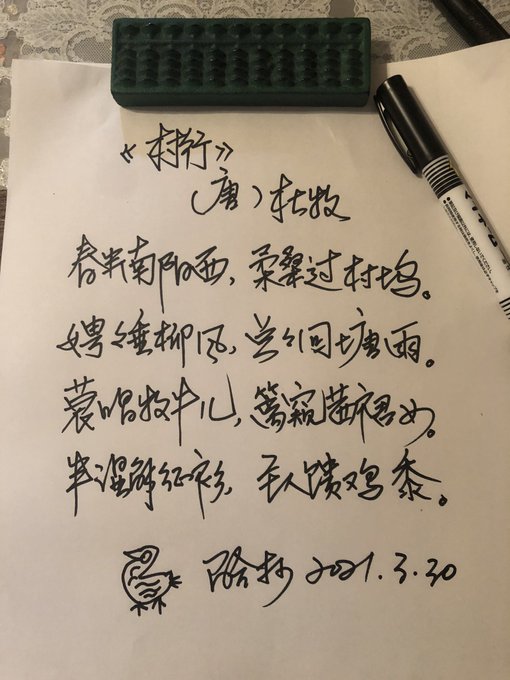 《村行》
(唐)杜牧
春半南阳西,柔桑过村坞。
娉々垂柳风,点々回塘雨。
蓑唱牧牛儿,篱窥茜裙女。
半湿解征衫,主人馈鸡黍。
抄 2021.3.30